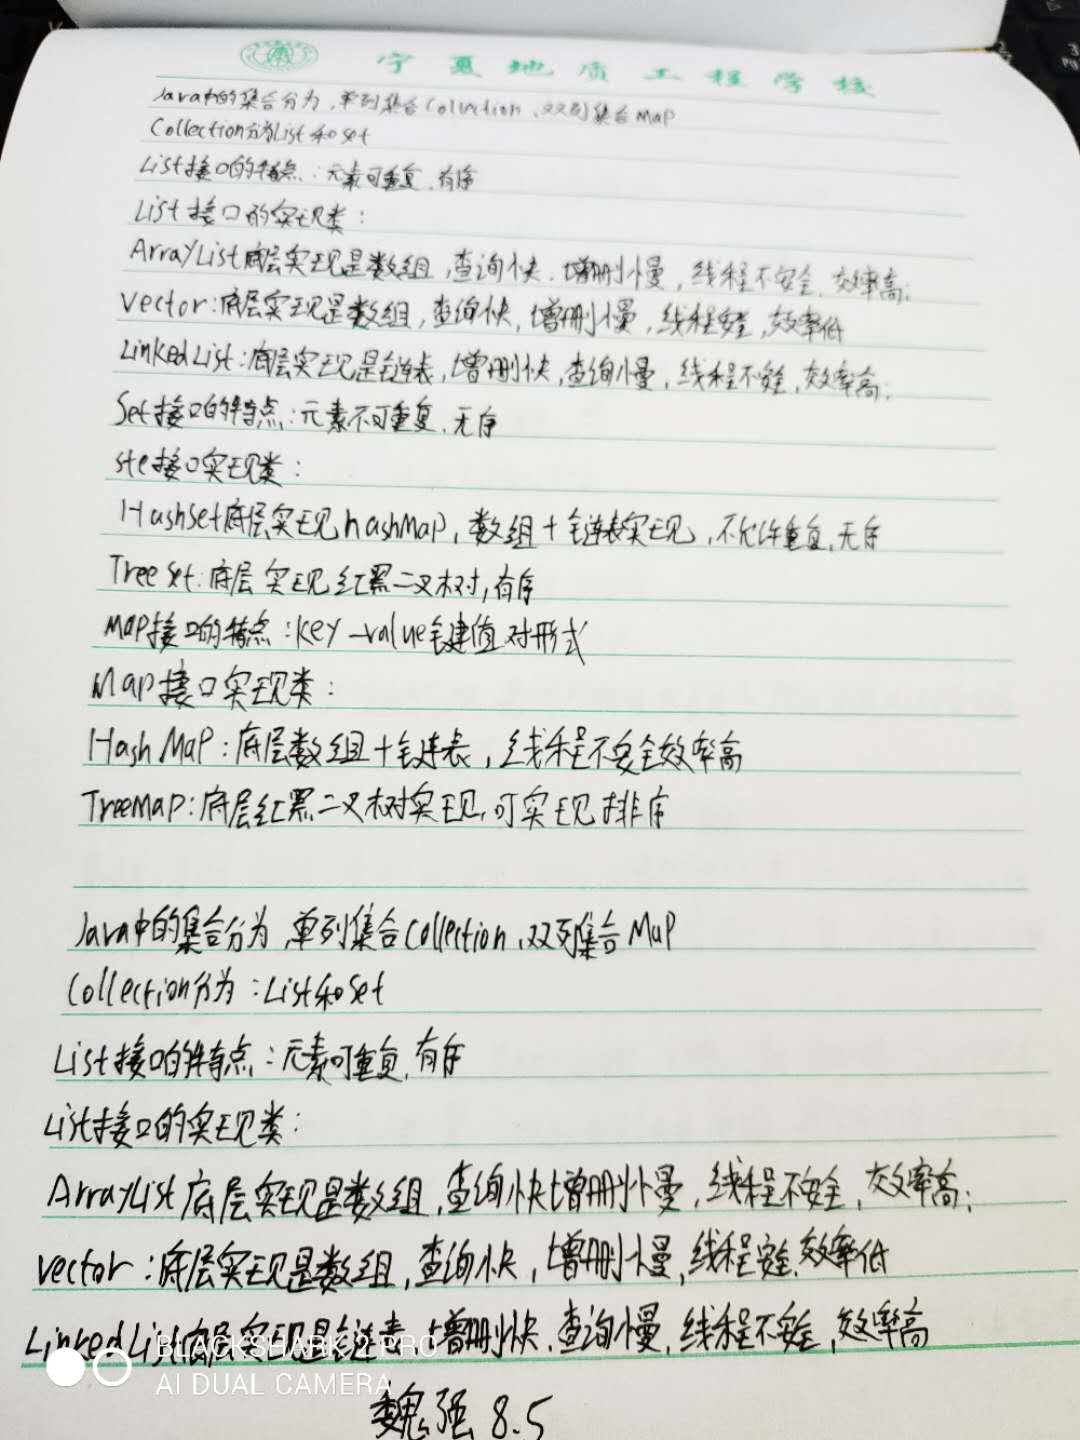 宁夏地质工程学校
Java中的集合分为,单列集合Collection、双列集合Map
Collection分为List和set
List接口的特点:元素可重复,有序
List接口的实现类:
ArrayList底层实现是数组,查询快,增删慢,线程不安全,效率高;
vector:底层实现是数组,查询快,增删慢,线程安全,效率低
LinkedList:底层实现是链表,增删快,查询慢,线程不安全,效率高;
Set接口的特点:元素不可重复,无序
ste接口实现类:
HashSet底层实现hashMap,数组+链表实现,不允许重复,无序
Tree set:底层实现红黑二叉树,有序
Map接口的特点:key-value键值对形式
Map接口实现类:
HashMap:底层数组+链表,线程不安全效率高
TreeMap:底层红黑二叉树实现,可实现排序
Java中的集合分为,单列集合Collection、双列集合Map
Collection分为:List和set
List接口的特点:元素可重复,有序
List接口的实现类:
ArrayList底层实现是数组,查询快增删慢,线程不安全,效率高;
vector:底层实现是数组,查询快,增删慢,线程安全,效率低
LinkedList底层实现是链表,增删快,查询慢,线程不安全,效率高
BLACKSHARK 2 PRO
AI DUAL CAMERA
魏强 8.5